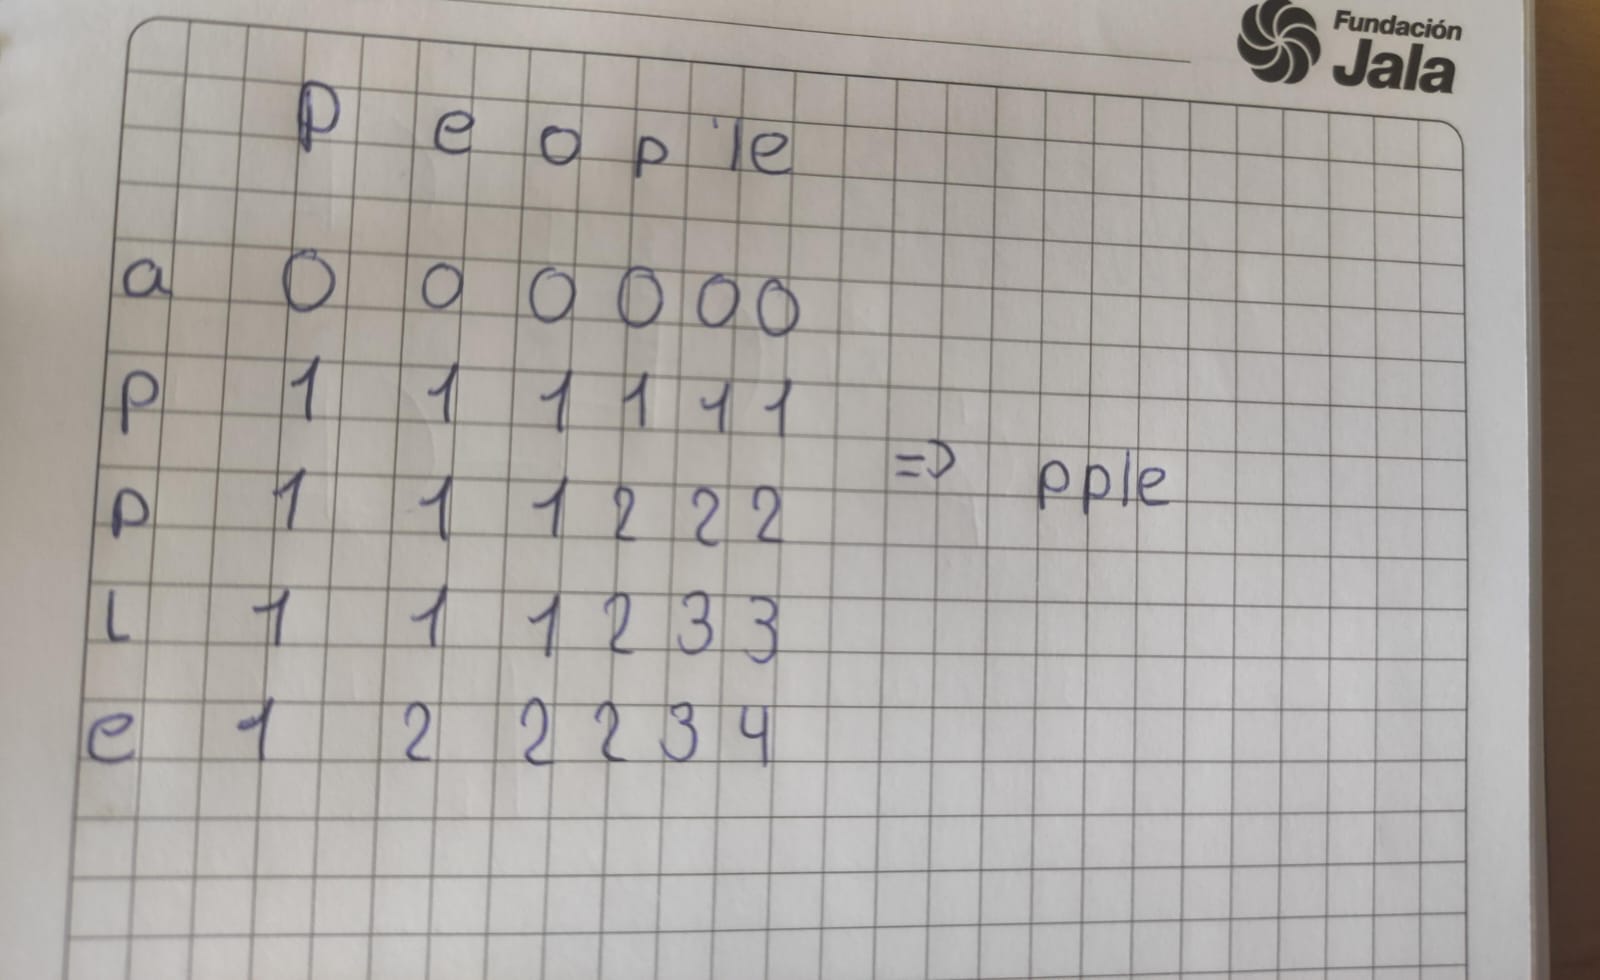 Fundación
Jala
p e o p l e
a 0 0 0 0 0 0
p 1 1 1 1 1 1
p 1 1 1 2 2 2
=> pple
l 1 1 1 2 3 3
e 1 2 2 2 3 4